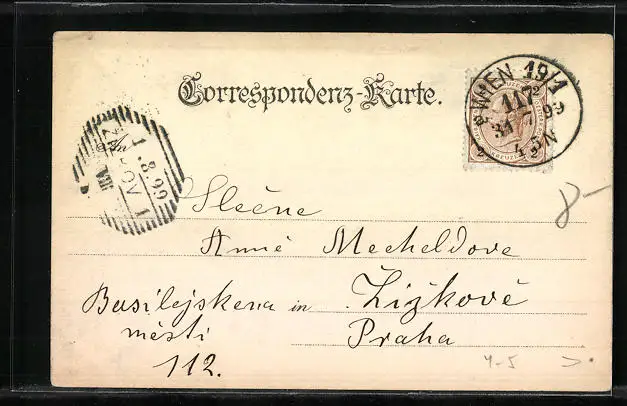 Correspondenz-Karte.
WIEN 19/1
31 7 99
1.8.99
Slečně
Anně Mecheldove
Basilejskena in Žižkově
městi Praha
112.
8-
4-5